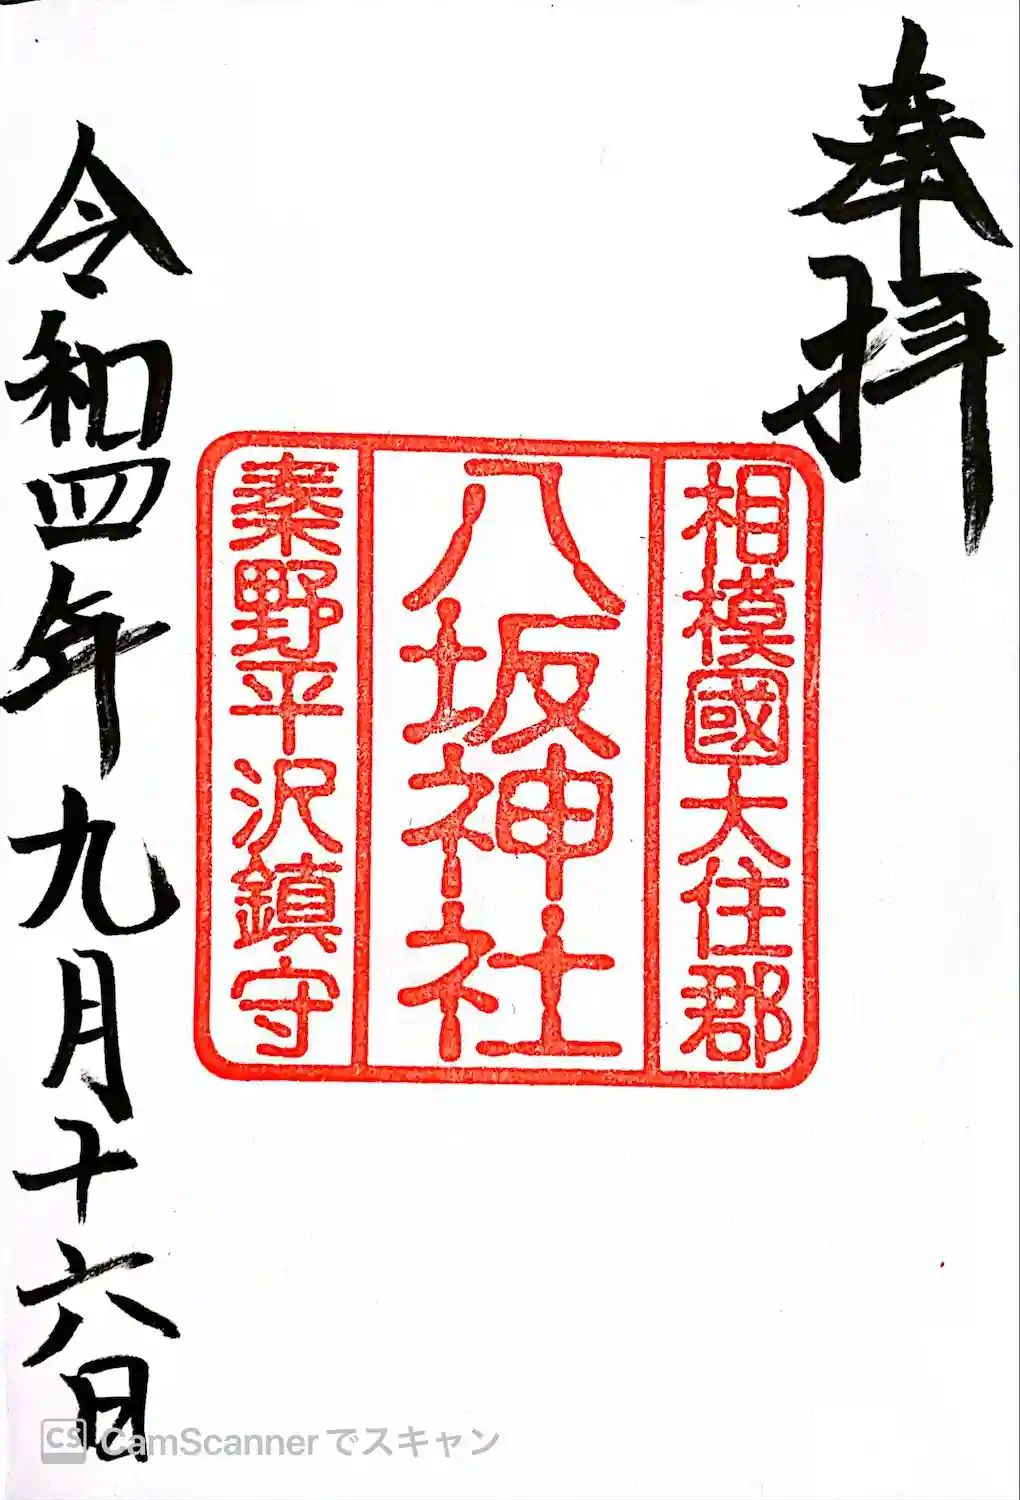 奉拝
相模國大住郡
八坂神社
秦野平沢鎮守
令和四年九月十六日
CS CamScannerでスキャン